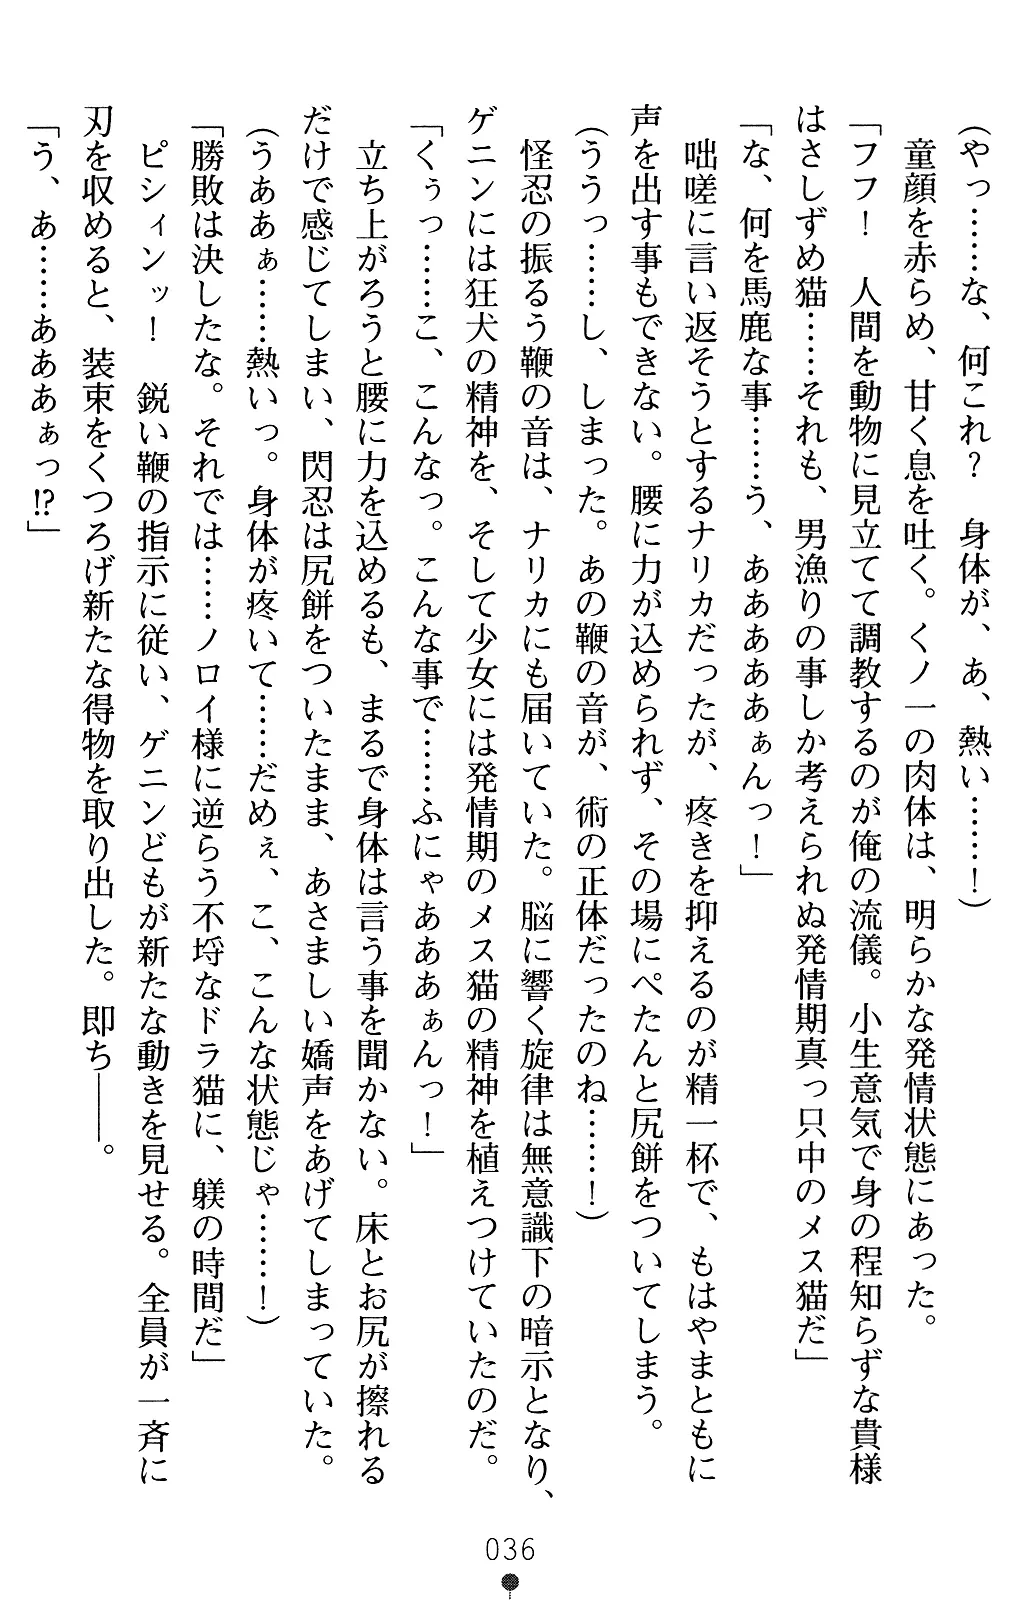 (やっ……な、何これ？　身体が、あ、熱い……！)
童顔を赤らめ、甘く息を吐く。くノ一の肉体は、明らかな発情状態にあった。
「フフ！　人間を動物に見立てて調教するのが俺の流儀。小生意気で身の程知らずな貴様
はさしずめ猫……それも、男漁りの事しか考えられぬ発情期真っ只中のメス猫だ」
「な、何を馬鹿な事……う、あああああぁんっ！」
咄嗟に言い返そうとするナリカだったが、疼きを抑えるのが精一杯で、もはやまともに
声を出す事もできない。腰に力が込められず、その場にぺたんと尻餅をついてしまう。
(ううっ……し、しまった。あの鞭の音が、術の正体だったのね……！)
怪忍の振るう鞭の音は、ナリカにも届いていた。脳に響く旋律は無意識下の暗示となり、
ゲニンには狂犬の精神を、そして少女には発情期のメス猫の精神を植えつけていたのだ。
「くぅっ……こ、こんなっ。こんな事で……ふにゃあああぁんっ！」
立ち上がろうと腰に力を込めるも、まるで身体は言う事を聞かない。床とお尻が擦れる
だけで感じてしまい、閃忍は尻餅をついたまま、あさましい嬌声をあげてしまっていた。
(うああぁ……熱いっ。身体が疼いて……だめぇ、こ、こんな状態じゃ……！)
「勝敗は決したな。それでは……ノロイ様に逆らう不埒なドラ猫に、躾の時間だ」
ピシィンッ！　鋭い鞭の指示に従い、ゲニンどもが新たな動きを見せる。全員が一斉に
刃を収めると、装束をくつろげ新たな得物を取り出した。即ち――。
「う、あ……あああぁっ!?」
036